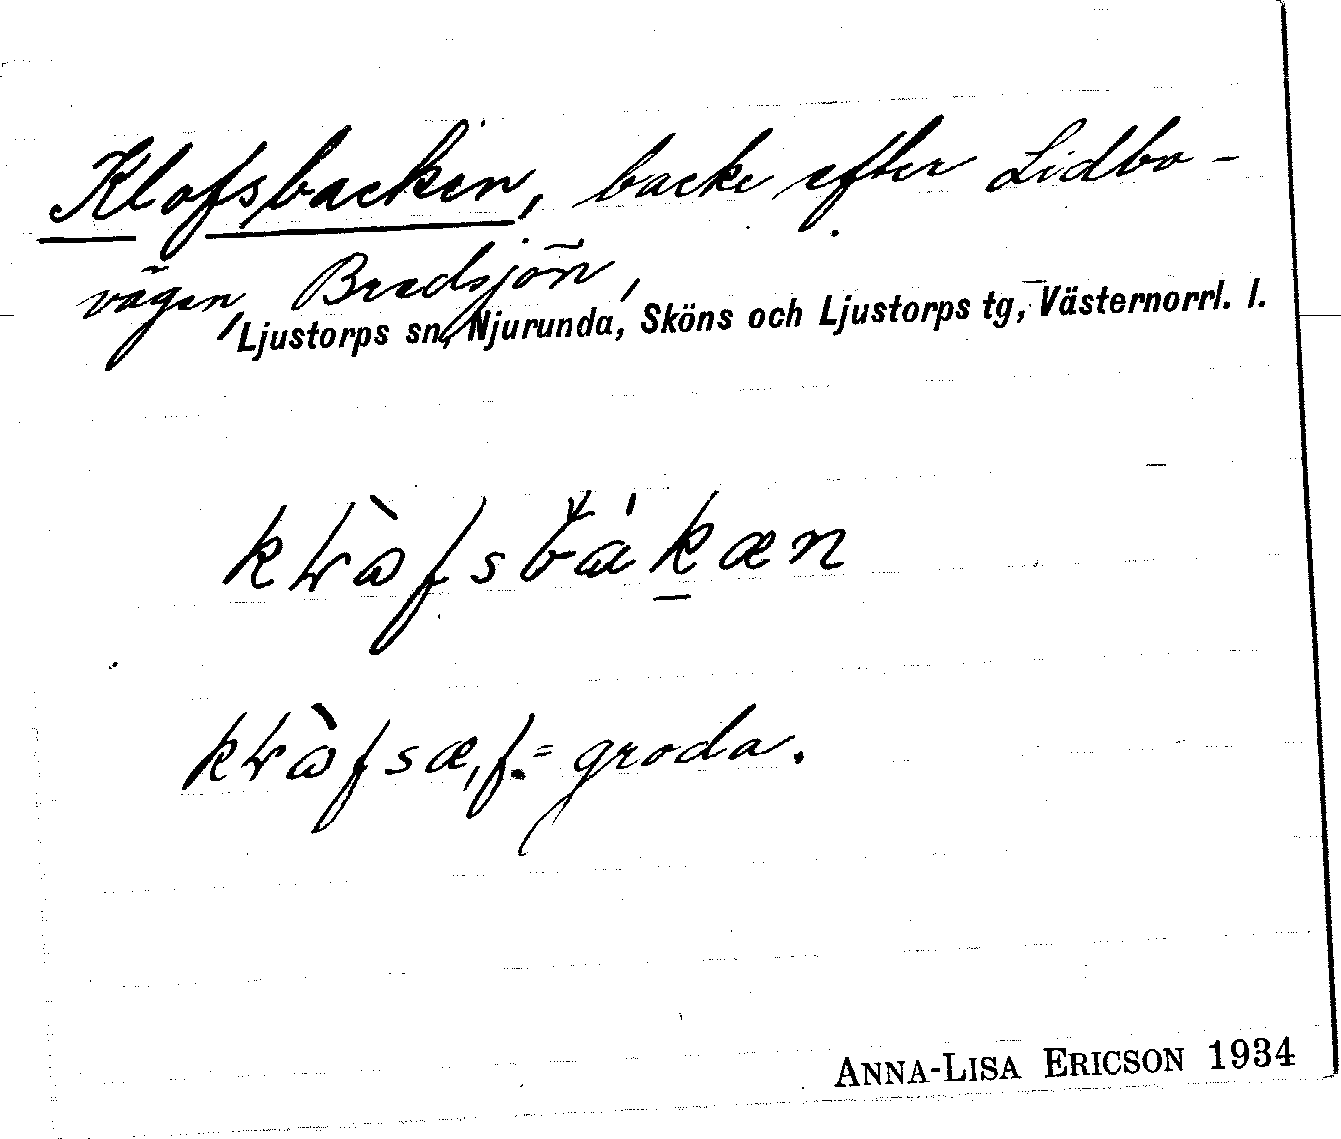 Klofsbacken, backe efter Lidbo-
vägen, Bredsjön,
Ljustorps sn, Njurunda, Sköns och Ljustorps tg, Västernorrl. l.
groda.
ANNA-LISA ERICSON 1934